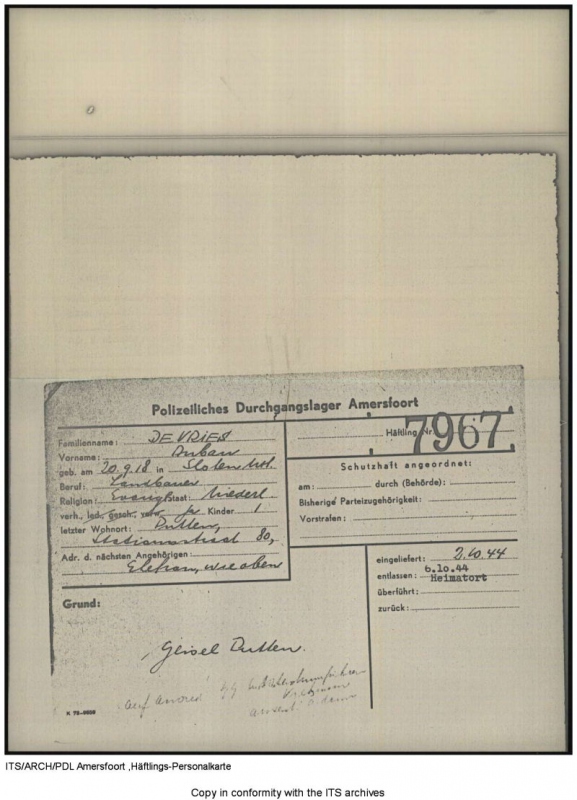 Polizeiliches Durchgangslager Amersfoort
Familienname: DE VRIES
Vorname:
geb. am 20.9.18 in Sloten
Beruf: Landbauer
Religion: Evang. Staat: Niederl.
verh., led., gesch., verw. Kinder 1
letzter Wohnort: Putten,
Stationsstraat 80,
Adr. d. nächsten Angehörigen:
Eltern, wie oben
Häftling Nr. 7967
Schutzhaft angeordnet:
am: durch (Behörde):
Bisherige Parteizugehörigkeit:
Vorstrafen:
eingeliefert: 2.10.44
6.10.44
entlassen: Heimatort
überführt:
zurück:
Grund:
Geisel Putten.
auf
ITS/ARCH/PDL Amersfoort ,Häftlings-Personalkarte
Copy in conformity with the ITS archives